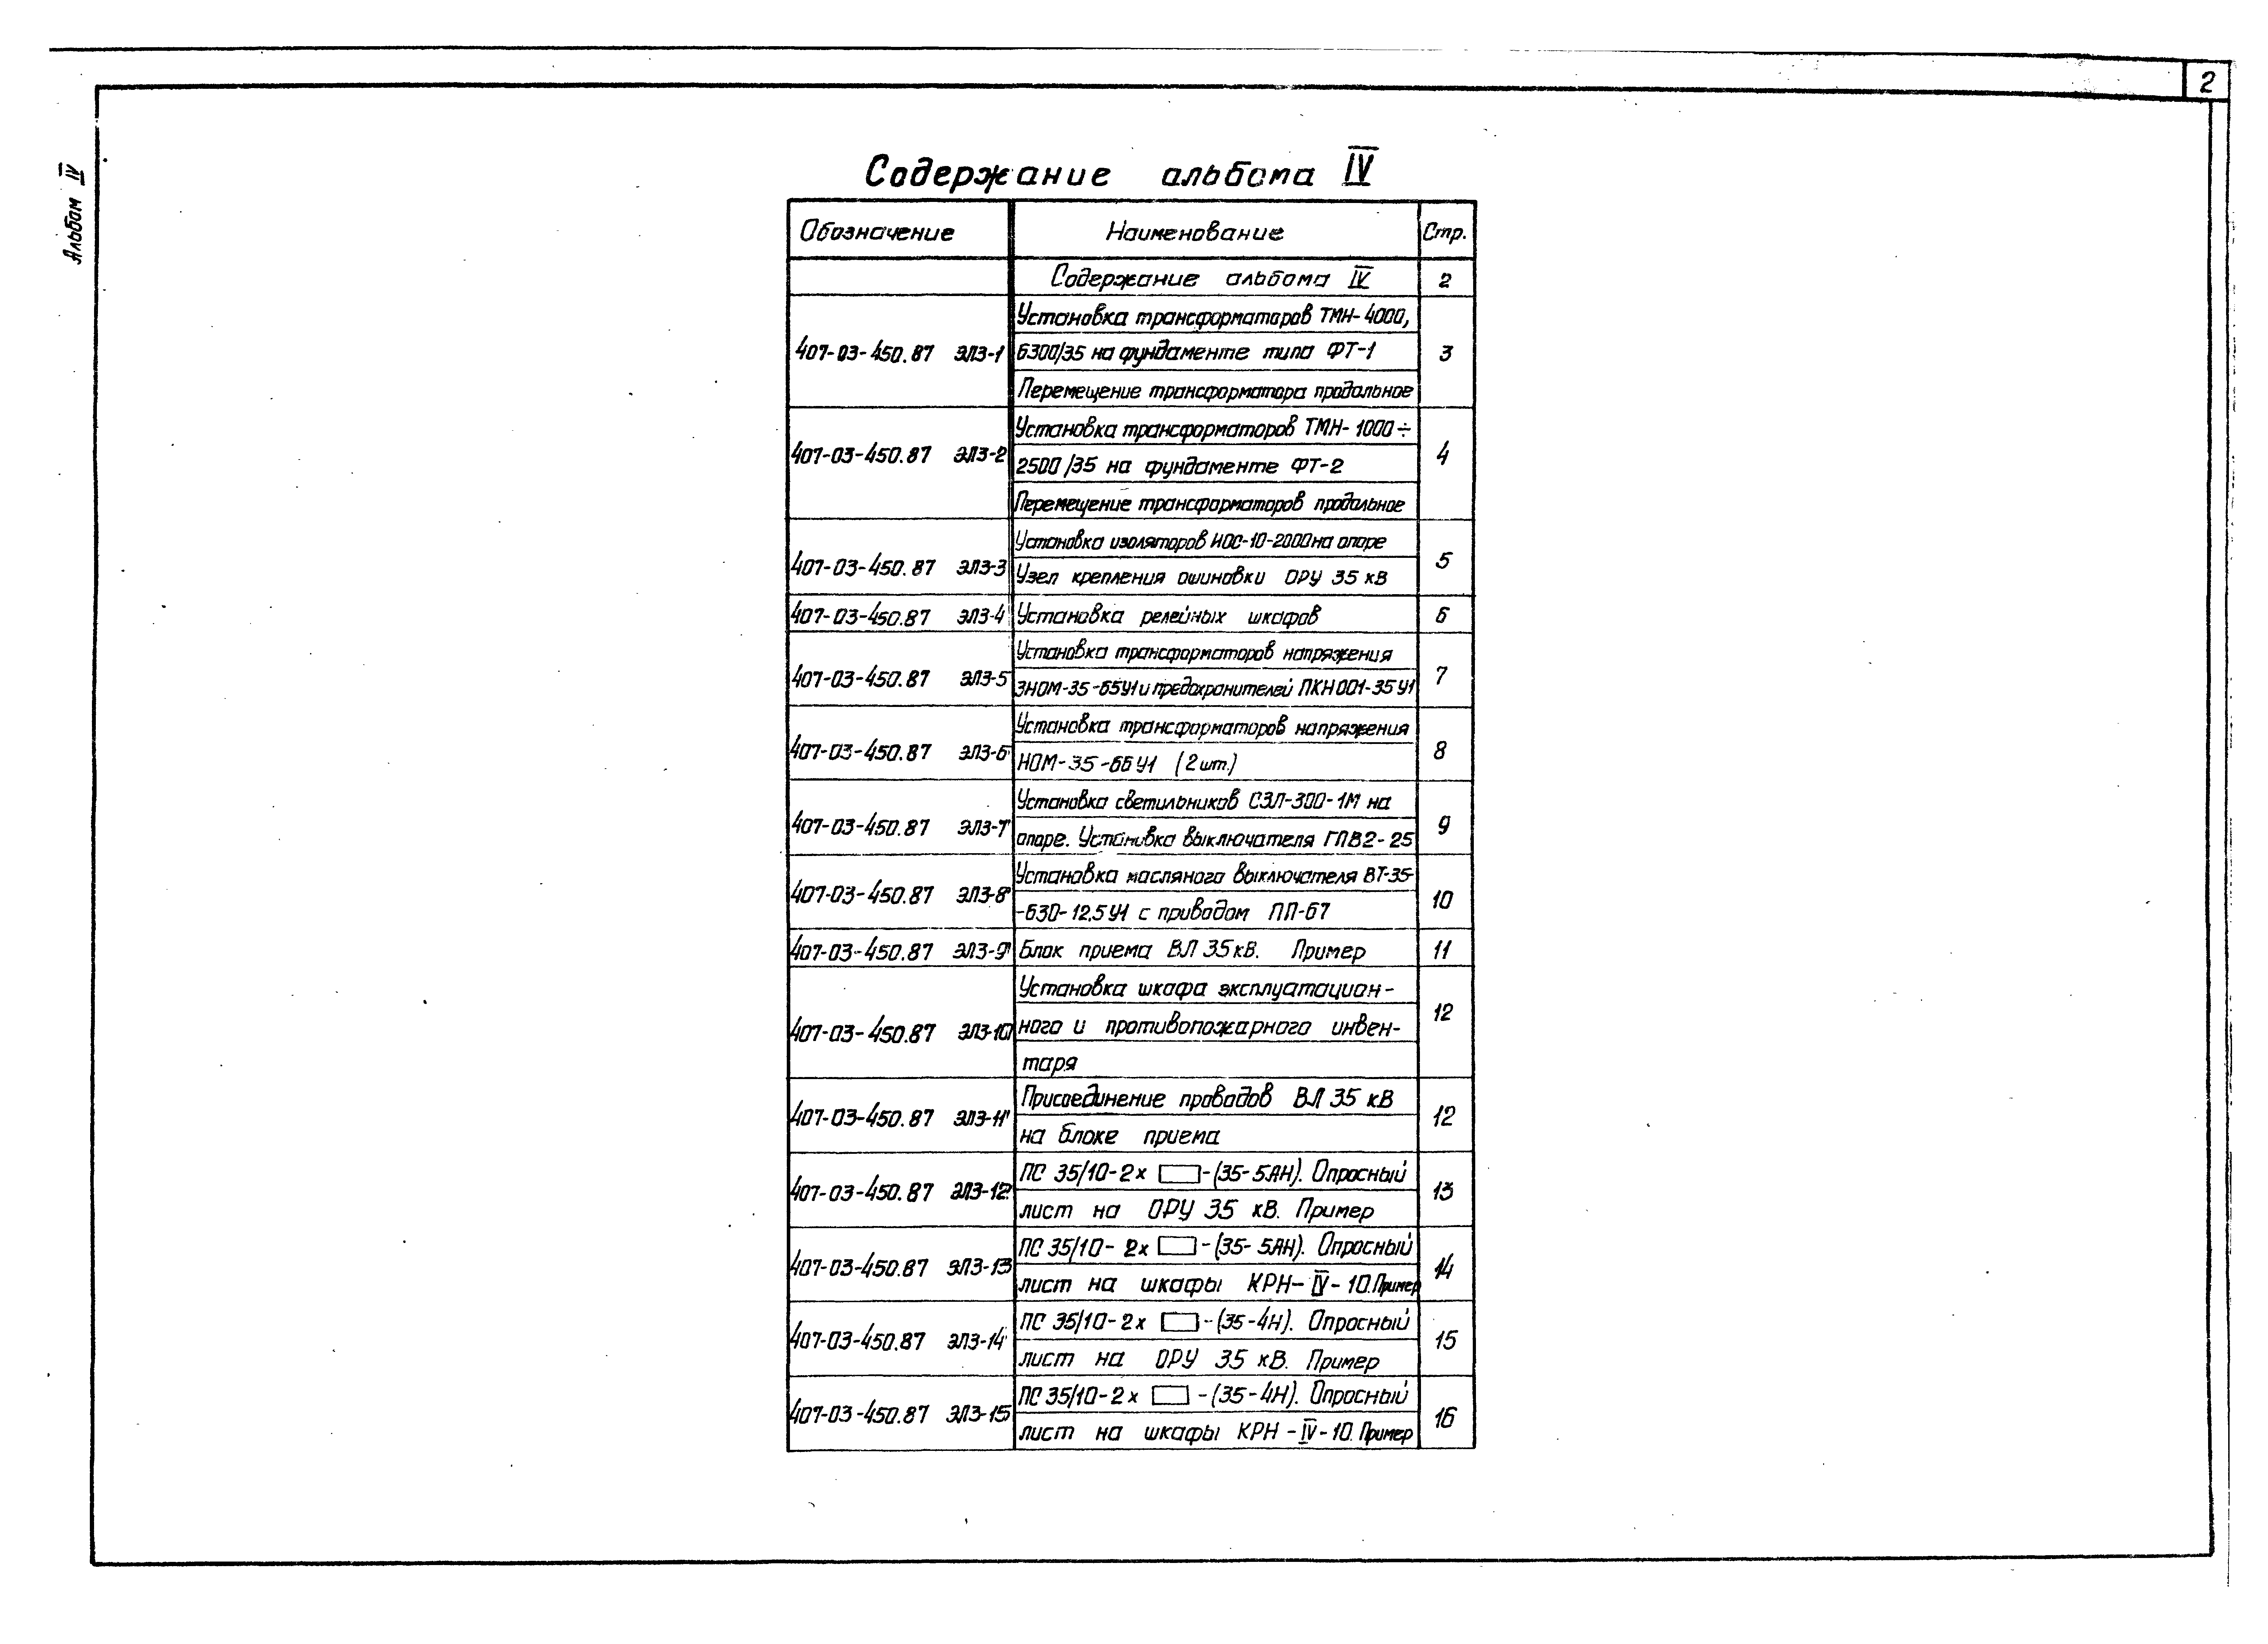 2
Альбом IV
Содержание альбома IV
Обозначение Наименование Стр.
Содержание альбома IV 2
Установка трансформаторов ТМН-4000,
407-03-450.87 ЭЛ3-1 6300/35 на фундаменте типа ФТ-1 3
Перемещение трансформатора продольное
Установка трансформаторов ТМН-1000÷
407-03-450.87 ЭЛ3-2 2500/35 на фундаменте ФТ-2 4
Перемещение трансформаторов продольное
Установка изоляторов ИОС-10-2000 на опоре
407-03-450.87 ЭЛ3-3 Узел крепления ошиновки ОРУ 35 кВ 5
407-03-450.87 ЭЛ3-4 Установка релейных шкафов 6
Установка трансформаторов напряжения
407-03-450.87 ЭЛ3-5 ЗНОМ-35-65У1 и предохранителей ПКН 001-35У1 7
Установка трансформаторов напряжения
407-03-450.87 ЭЛ3-6 НОМ-35-66У1 (2 шт.) 8
Установка светильников СЗЛ-300-1М на
407-03-450.87 ЭЛ3-7 опоре. Установка выключателя ГПВ2-25 9
Установка масляного выключателя ВТ-35-
407-03-450.87 ЭЛ3-8 -630-12,5У1 с приводом ПП-67 10
407-03-450.87 ЭЛ3-9 Блок приема ВЛ 35 кВ. Пример 11
Установка шкафа эксплуатацион-
407-03-450.87 ЭЛ3-10 ного и противопожарного инвен- 12
таря
Присоединение проводов ВЛ 35 кВ
407-03-450.87 ЭЛ3-11 на блоке приема 12
ПС 35/10-2х □-(35-5АН). Опросный
407-03-450.87 ЭЛ3-12 лист на ОРУ 35 кВ. Пример 13
ПС 35/10-2х □-(35-5АН). Опросный
407-03-450.87 ЭЛ3-13 лист на шкафы КРН-IV-10. Пример 14
ПС 35/10-2х □-(35-4Н). Опросный
407-03-450.87 ЭЛ3-14 лист на ОРУ 35 кВ. Пример 15
ПС 35/10-2х □-(35-4Н). Опросный
407-03-450.87 ЭЛ3-15 лист на шкафы КРН-IV-10. Пример 16